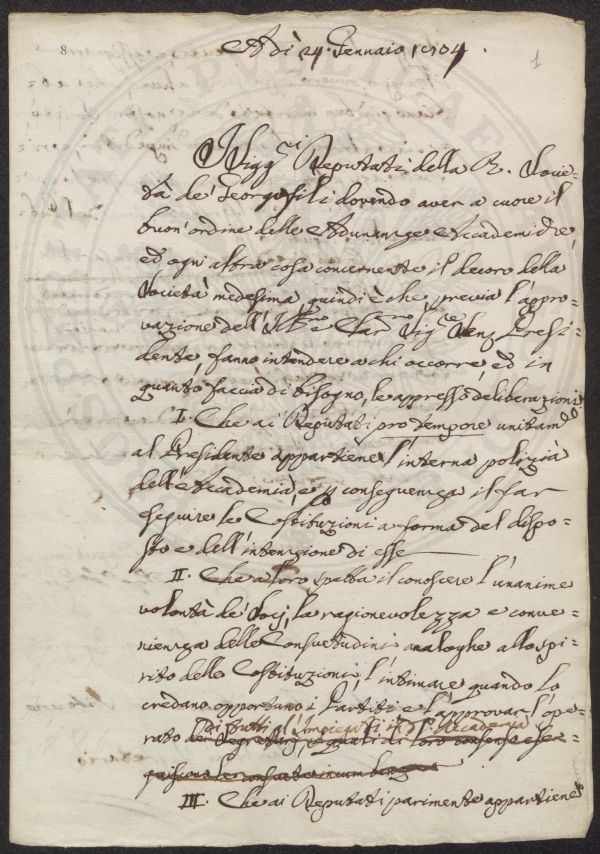 8
1
Adì 24. Gennaio 1704.
I Sigg.ri Deputati della R. Socie=
tà de' Georgofili dovendo aver a cuore il
buon'ordine delle Adunanze Accademiche,
ed ogni altra cosa concernente il decoro della
Società medesima, quindi è che previa l'appro=
vazione dell' Ill.mo e Clar.mo Sig.re Presi=
dente, fanno intendere a chi occorre, ed in
quanto faccia di bisogno, le appresso deliberazioni
I. Che ai Deputati pro tempore unitam.te
al Presidente appartiene l'interna polizia
dell'Accademia, e p conseguenza il far
seguire le Costituzioni a forma del dispo=
sto e dell'intenzione di esse
II. Che a loro spetta il conoscere l'unanime
volontà de' Socj, la ragionevolezza e conve=
nienza delle Consuetudini analoghe allo spi=
rito delle Costituzioni, l'intimare quando lo
credano opportuno i Partiti e l'approvar l'ope=
di tutti gl'Impiegati in d.a Accademia
rato dei Segretarj, i quali di loro consenso ese=
guiscono le incumbenze
III. Che ai Deputati parimente appartiene